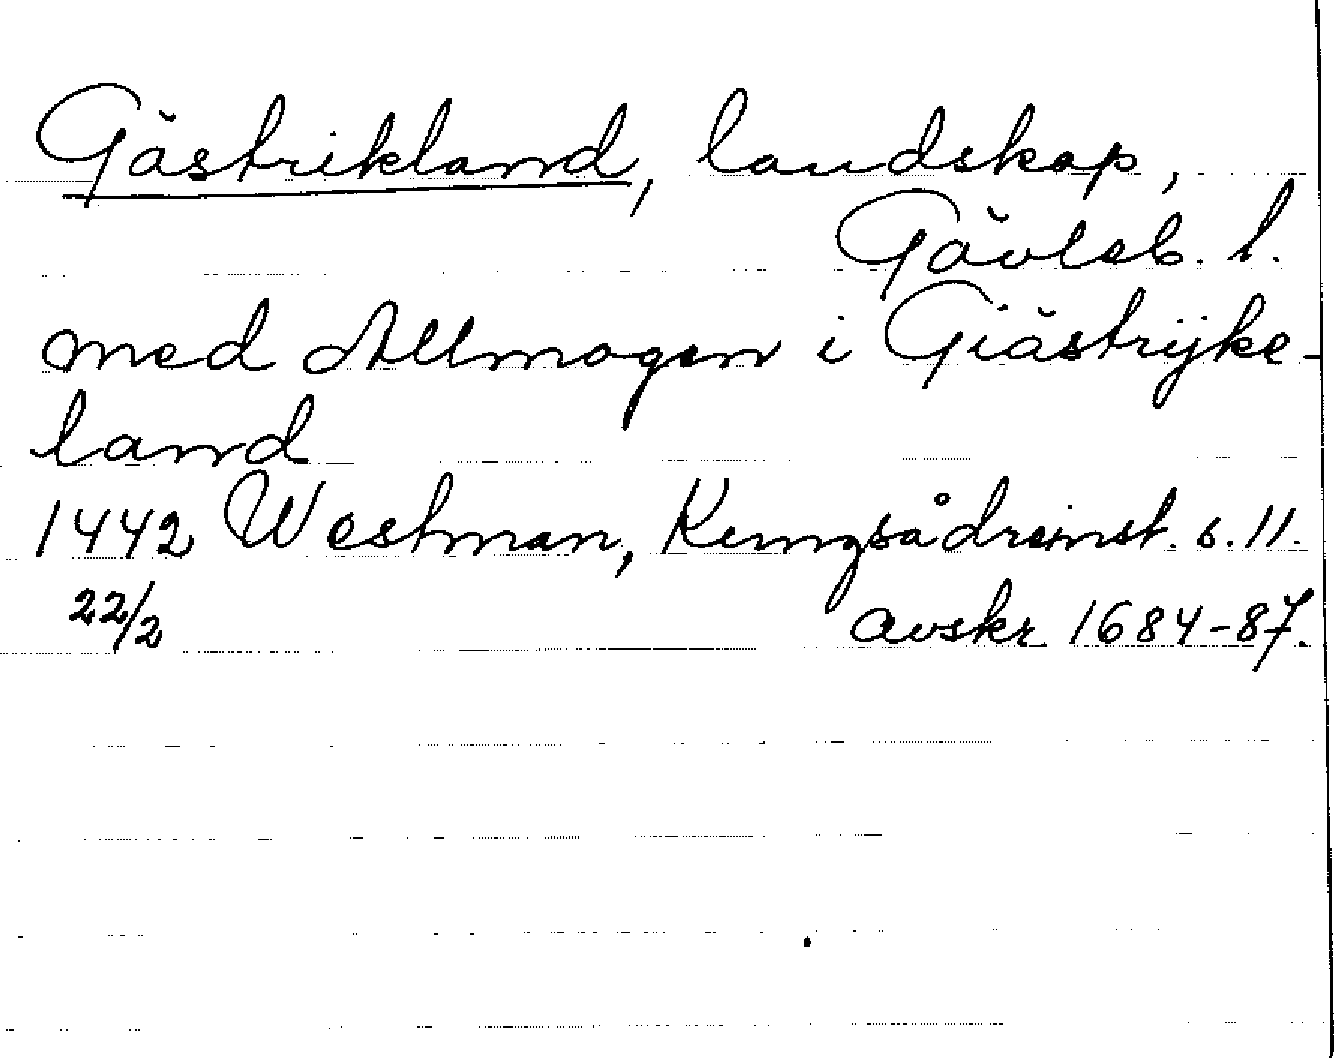 Gästrikland, landskap,
Gävleb. l.
med Allmogen i Giästrijke-
land
1442 Westman, Kungsådreinst. s. 11.
22/2 avskr. 1684-87.